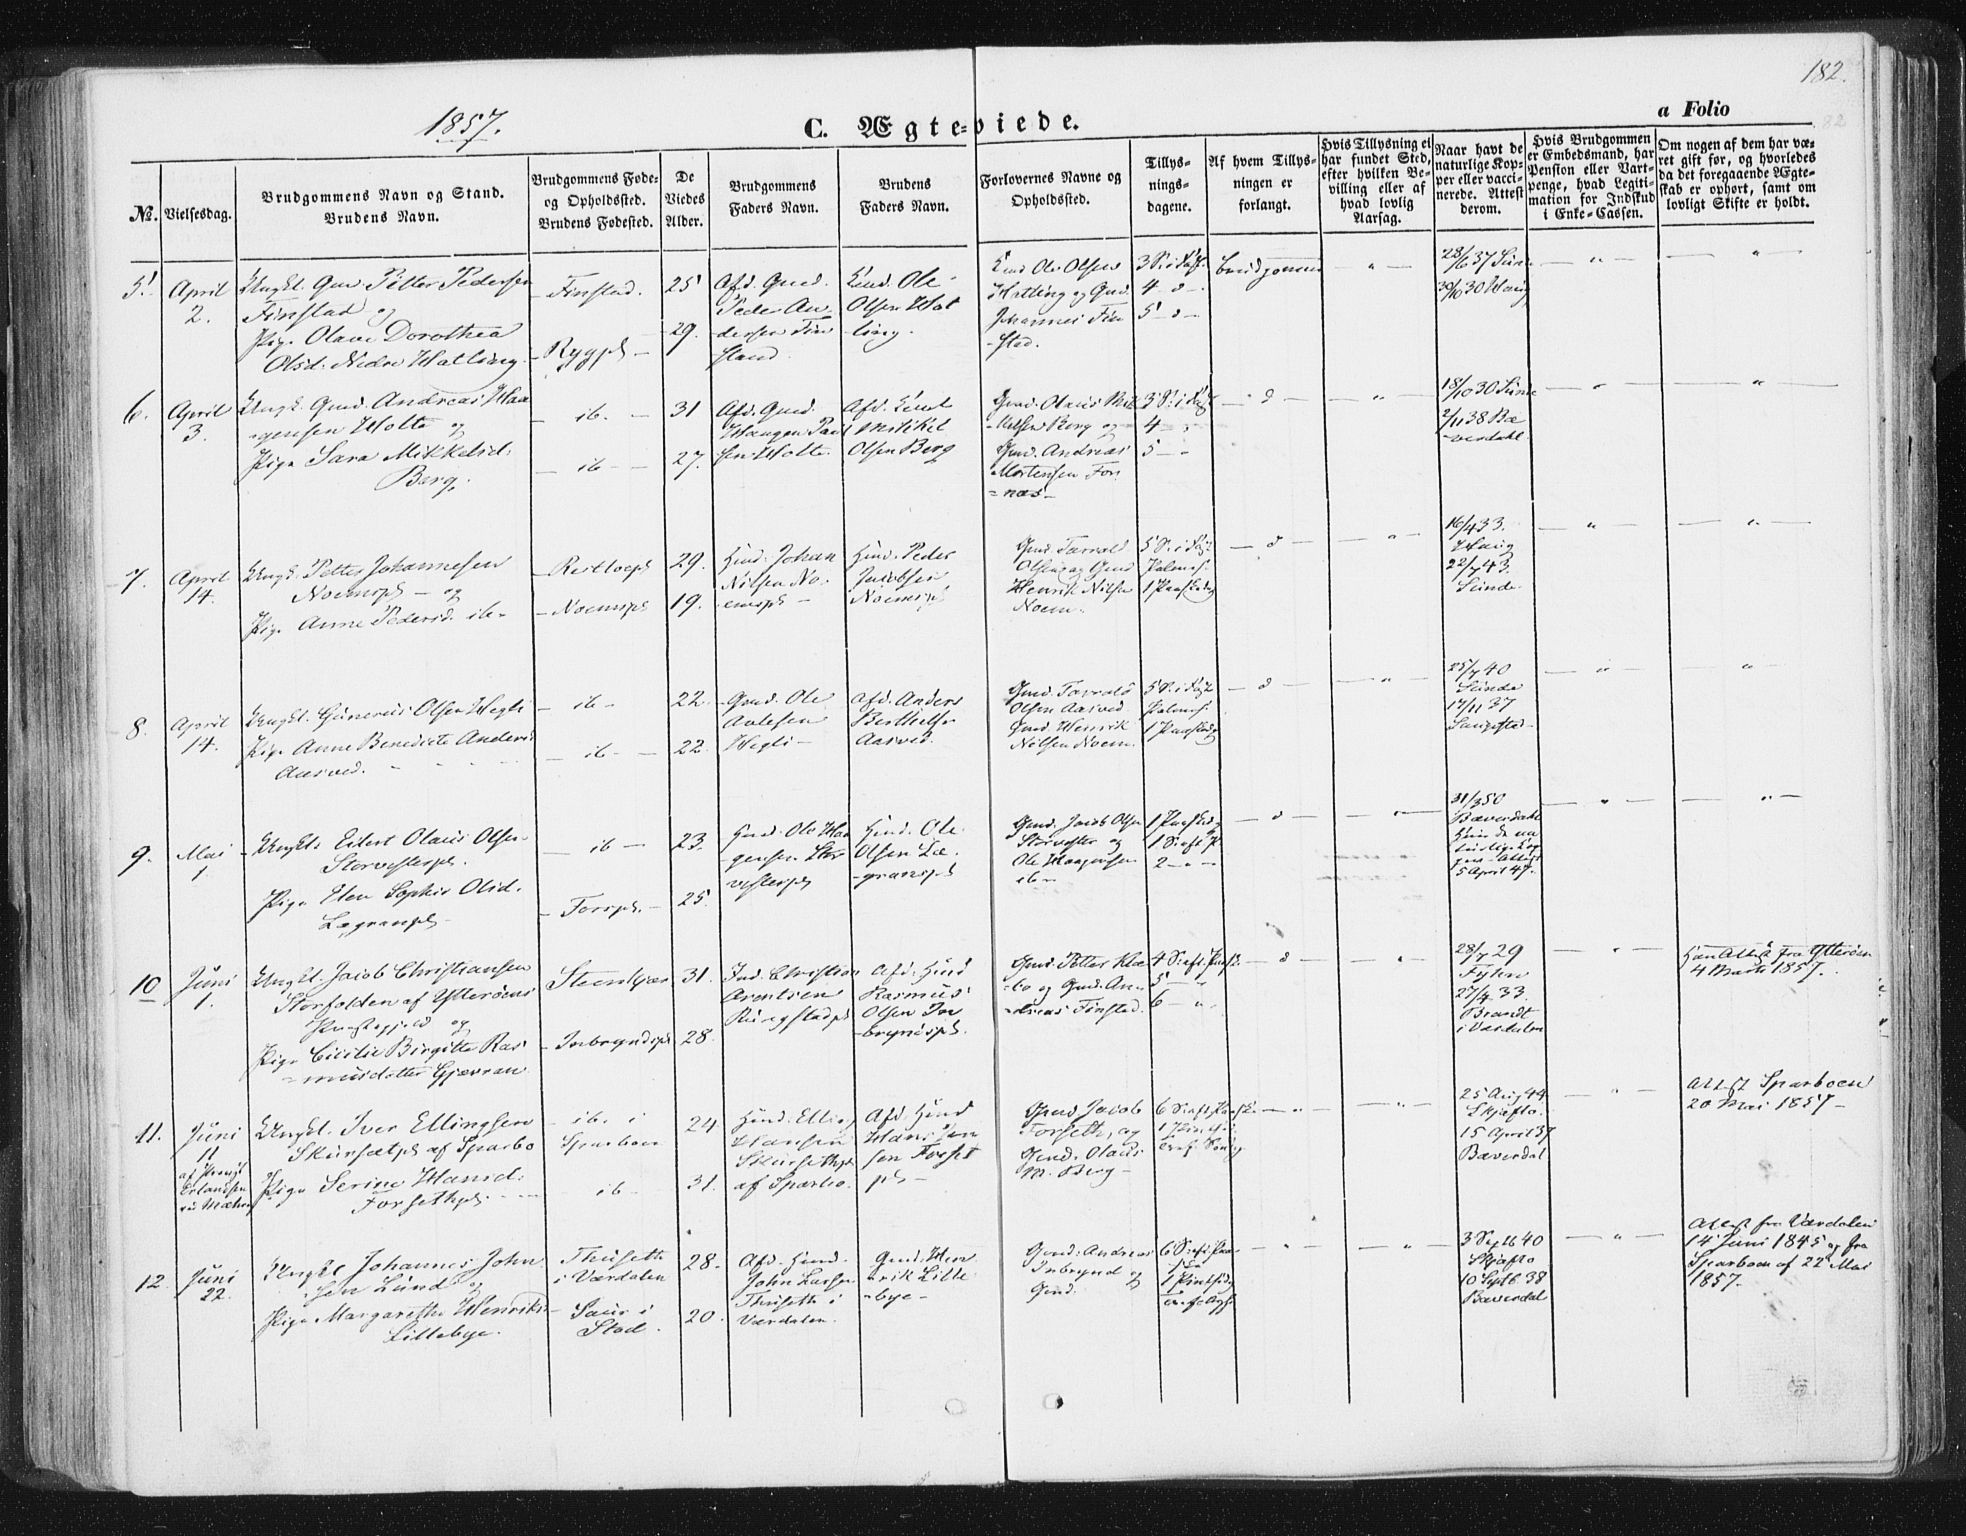 182.
1857.
C. Ægteviede.
a Folio
82
No.
Vielsesdag.
Brudgommens Navn og Stand.
Brudens Navn.
Brudgommens Føde-
og Opholdssted.
Brudens Fødested.
De
Viedes
Alder.
Brudgommens
Faders Navn.
Brudens
Faders Navn.
Forlovernes Navne og
Opholdssted.
Tillys-
nings-
dagene.
Af hvem Tillys-
ningen er
forlangt.
Hvis Tillysning ei
har fundet Sted,
efter hvilken Be-
villing eller af
hvad lovlig
Aarsag.
Naar havt de
naturlige Kop-
per eller vacci-
nerede. Attest
derom.
Hvis Brudgommen
er Embedsmand, har
Pension eller Vart-
penge, hvad Legiti-
mation for Indskud
i Enke-Cassen.
Om nogen af dem har væ-
ret gift før, og hvorledes
da det foregaaende Ægte-
skab er ophørt, samt om
lovligt Skifte er holdt.
5.
April
2.
Ungkl. Gmd. Petter Pedersen
Finstad og
Pige Olave Dorothea
Olsd. Nedre Hatling.
Finstad.
25
29.
Afd. Gmd.
Peder An-
dersen Fin
stad.
Ole
Olsen Hat
ling.
Ole Olsen
Hatling og Gmd.
Johannes Fin
-stad.
4 - d -
5 - d -
brudgommen
28/6 37
30/10 30
6.
April
3.
Ungk. Gmd. Andreas Haa
-gensen Holte og
Pige Sara Mikkelsd.
Berg.
ib.
ib
31
27.
Afd. Gmd.
Haagen
Holte
Afd.
Mikkel
Olsen Berg
Gmd. Olaus Mik
-kelsen Berg og
Gmd. Andreas
Mortensen For
=næs
4
5
d
18/10 30 Sunde
2/11 38 Bæ
verdahl.
7.
April
14.
Ungk. Petter Johannesen
Noemspl - og
Pige Anne Pedersd. ib-
Noemspl
29.
19.
Hmd. Johan
Nilsen No-
emspl -
Hmd. Peder
Jacobsen
Noemspl
Gmd. Tarrald
Olsen og Gmd
Henrik Nilsen
Noem.
Palmes.
d
16/4 33.
Haug
22/7 43.
Sunde.
8.
April
14.
Ungkl. Gunerius Olsen Hegli
Pige Anne Benedicte Andersd
Aasved.
ib-
ib-
22.
22.
Gmd. Ole
Hegli -
Afd. Anders
Berthels
Aasved.
Gmd. Tarrald
Olsen Aasved
Gmd. Henrik
Nilsen Noem.
Palmes.
d
25/7 40
Sunde
17/11 37
9.
Mai
1.
Ungkl. Eilert Olaus Olsen
Storvesterpl.
Pige Elen Sophie Olsd.
Lægranpl-
ib
Forspl.
23.
25.
Hmd. Ole Haa
gensen Stor
vesterpl
Hmd. Ole
Olsen Læ-
-granspl
Gmd. Jacob Olsen
Storvester og
Ole Haagensen
ib-
d
31/3 50
Bæverdahl
5 April 47.
10
Juni
1.
Ungkl. Jacob Christiansen
Storfolden af Ytterøens
Præstegjeld og
Pige Cicilie Birgitte Ras
=musdatter Gjævran
Steenkjær
Inbryndspl
31.
28.
Ind. Christian
Arentsen
Ringstadpl
Afd. Hmd
Rasmus
Olsen In
-bryndspl.
Gmd. Petter Kle
-bo og Gmd. An-
-dreas Finstad.
5 -
6 -
d
28/7 29
Fyhn
27/4 33.
Brandt
i Værdalen
Han Attest fra Ytterøen
4 Marts 1857.
11.
Juni
11
Erlandsen
Ungkl. Iver Ellingsen
Skursætpl. af Sparbo
Pige Serine Hansd.
Forsethpl.
ib. i
Sparboen
ib-
24
31.
Hmd. Elling
Hansen
Skursethpl
af Sparbo.
Afd. Hmd
Hans
sen Forset
pl -
Gmd Jacob
Forseth, og
Gmd. Olaus
M. Berg -
25 Aug 44
Skjefto.
15 April 37
Bæverdal
Attest Sparboen
20 Mai 1857 -
12.
Juni
22.
Ungkl Johannes John
sen Lund og
Pige Margarethe Henriksd
Littebye.
Thuseth
i Værdalen
i
Stod.
28.
20.
Afd. Hmd.
John Larsen
Thuseth i
Værdalen.
Gmd. Hen
-rik Litte
-bye-
Gmd: Andreas
Inbrynd og
Gmd.
3 Septb 40
Skjefto
10 Septb. 38
Bæverdal
Attest fra Værdalen
14 Juni 1845 og fra
Sparboen af 22 Mai
1857.